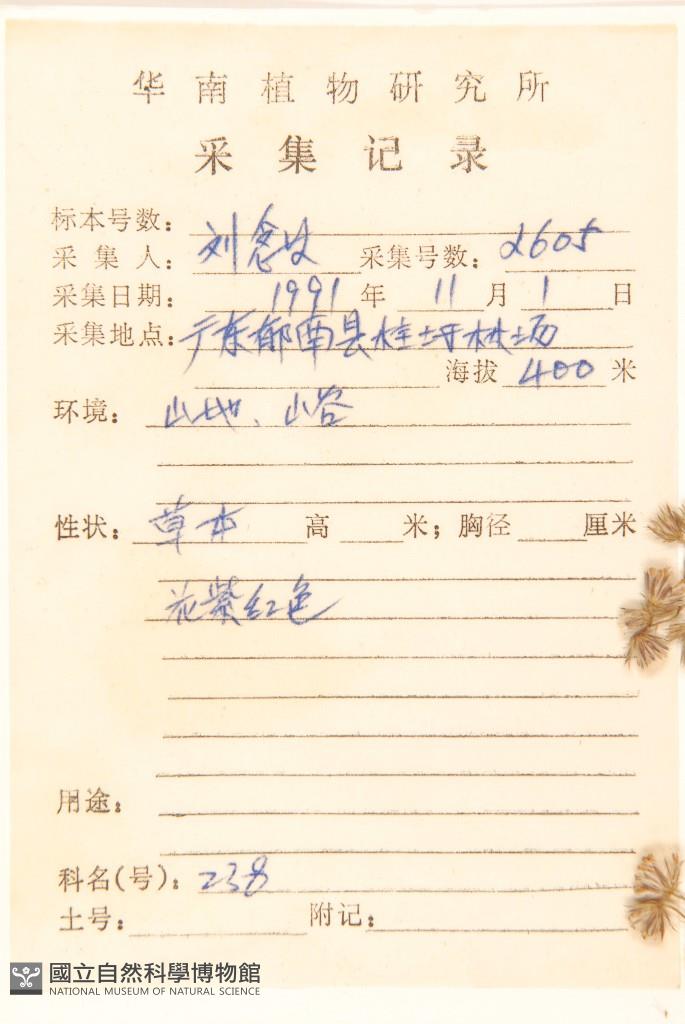 华南植物研究所
采集记录
标本号数：
采集人：刘念 采集号数：2605
采集日期：1991年11月1日
采集地点：广东郁南县桂圩林场
海拔 400 米
环境：山地、山谷
性状：草本 高 米；胸径 厘米
花紫红色
用途：
科名(号)：238
土号： 附记：
國立自然科學博物館
NATIONAL MUSEUM OF NATURAL SCIENCE